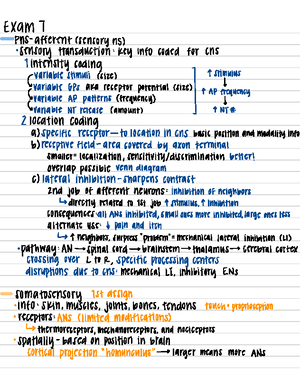 EXAM 7
PNS-afferent (sensory ns)
•sensory transduction: key info coded for CNS
1 intensity coding
variable stimuli (size)
variable GPs aka receptor potential (size)
variable AP patterns (frequency)
variable NT release (amount)
↑ stimulus
↑ AP frequency
↑ NT
2 location coding
a) specific receptor → to location in CNS basic position and modality info
b) receptive field - area covered by axon terminal
smaller = localization, sensitivity/discrimination better!
overlap possible venn diagram
c) lateral inhibition - sharpens contrast
2nd job of afferent neurons: inhibition of neighbors
↳ directly related to its job ↑ stimulus, ↑ inhibition
consequences: all ANs inhibited, small ones more inhibited, large ones less
alternate use: ↓ pain and itch
↳ ↑ neighbors, surpress "problem" = mechanical lateral inhibition (LI)
•pathway: AN → spinal cord → brainstem → thalamus → cerebral cortex
crossing over L to R, specific processing centers
disruptions due to CNS: mechanical LI, inhibitory ENs
somatosensory 1st design
•info: skin, muscles, joints, bones, tendons touch + proprioception
•receptors: ANs (limited modifications)
↳ thermoreceptors, mechanoreceptors, and nociceptors
•spatially - based on position in brain
cortical projection "homunculus" → larger means more ANs